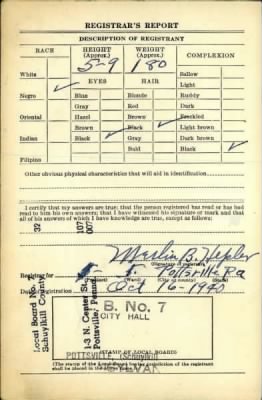 REGISTRAR'S REPORT
DESCRIPTION OF REGISTRANT
RACE HEIGHT (Approx.) WEIGHT (Approx.) COMPLEXION
5-9 180
White Sallow
EYES HAIR Light
Negro Blue Blonde Ruddy
Gray Red Dark
Oriental Hazel Brown Freckled
Brown Black Light brown
Indian Black Gray Dark brown
Bald Black
Filipino
Other obvious physical characteristics that will aid in identification
I certify that my answers are true; that the person registered has read or has had
read to him his own answers; that I have witnessed his signature or mark and that
all of his answers of which I have knowledge are true, except as follows:
32 107 007
(Signature of registrar)
Registrar for
Pottsville Pa
Date of registration Oct 16-1940
Local Board No. 7
Schuylkill County
Pottsville, Penna.
B. No. 7
CITY HALL
POTTSVILLE
(STAMP OF LOCAL BOARD)
(The stamp of the Local Board having jurisdiction of the registrant
shall be placed in the above space.)